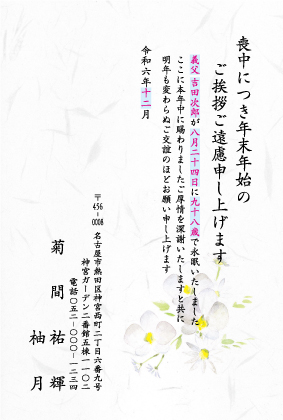 喪中につき年末年始の
ご挨拶ご遠慮申し上げます
義父 吉田次郎が八月二十四日に九十八歳で永眠いたしました
ここに本年中に賜わりましたご厚情を深謝いたしますと共に
明年も変わらぬご交誼のほどお願い申し上げます
令和六年十二月
〒456-0008
名古屋市熱田区神宮西町二丁目六番九号
神宮ガーデン二番館五棟一一〇二
電話〇五二-〇〇〇-一二三四
菊間 祐輝
柚月